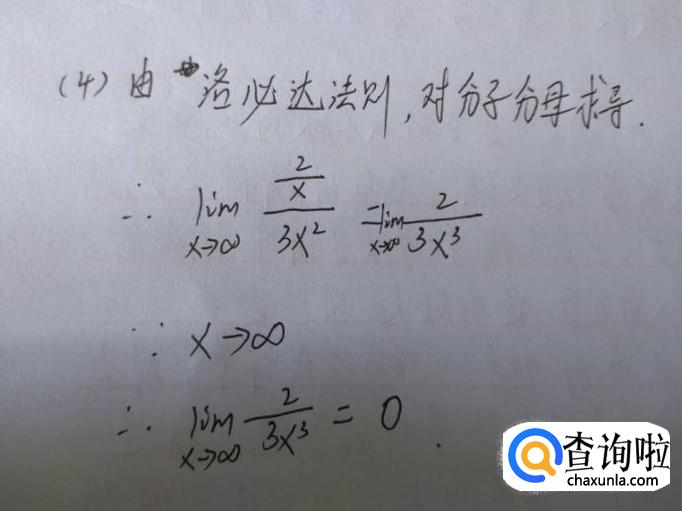 (4) 由洛必达法则,对分子分母求导.
∴ lim x→∞ (2/x)/(3x²) = lim x→∞ 2/(3x³)
∵ x→∞
∴ lim x→∞ 2/(3x³) = 0.
查询啦
chaxunla.com